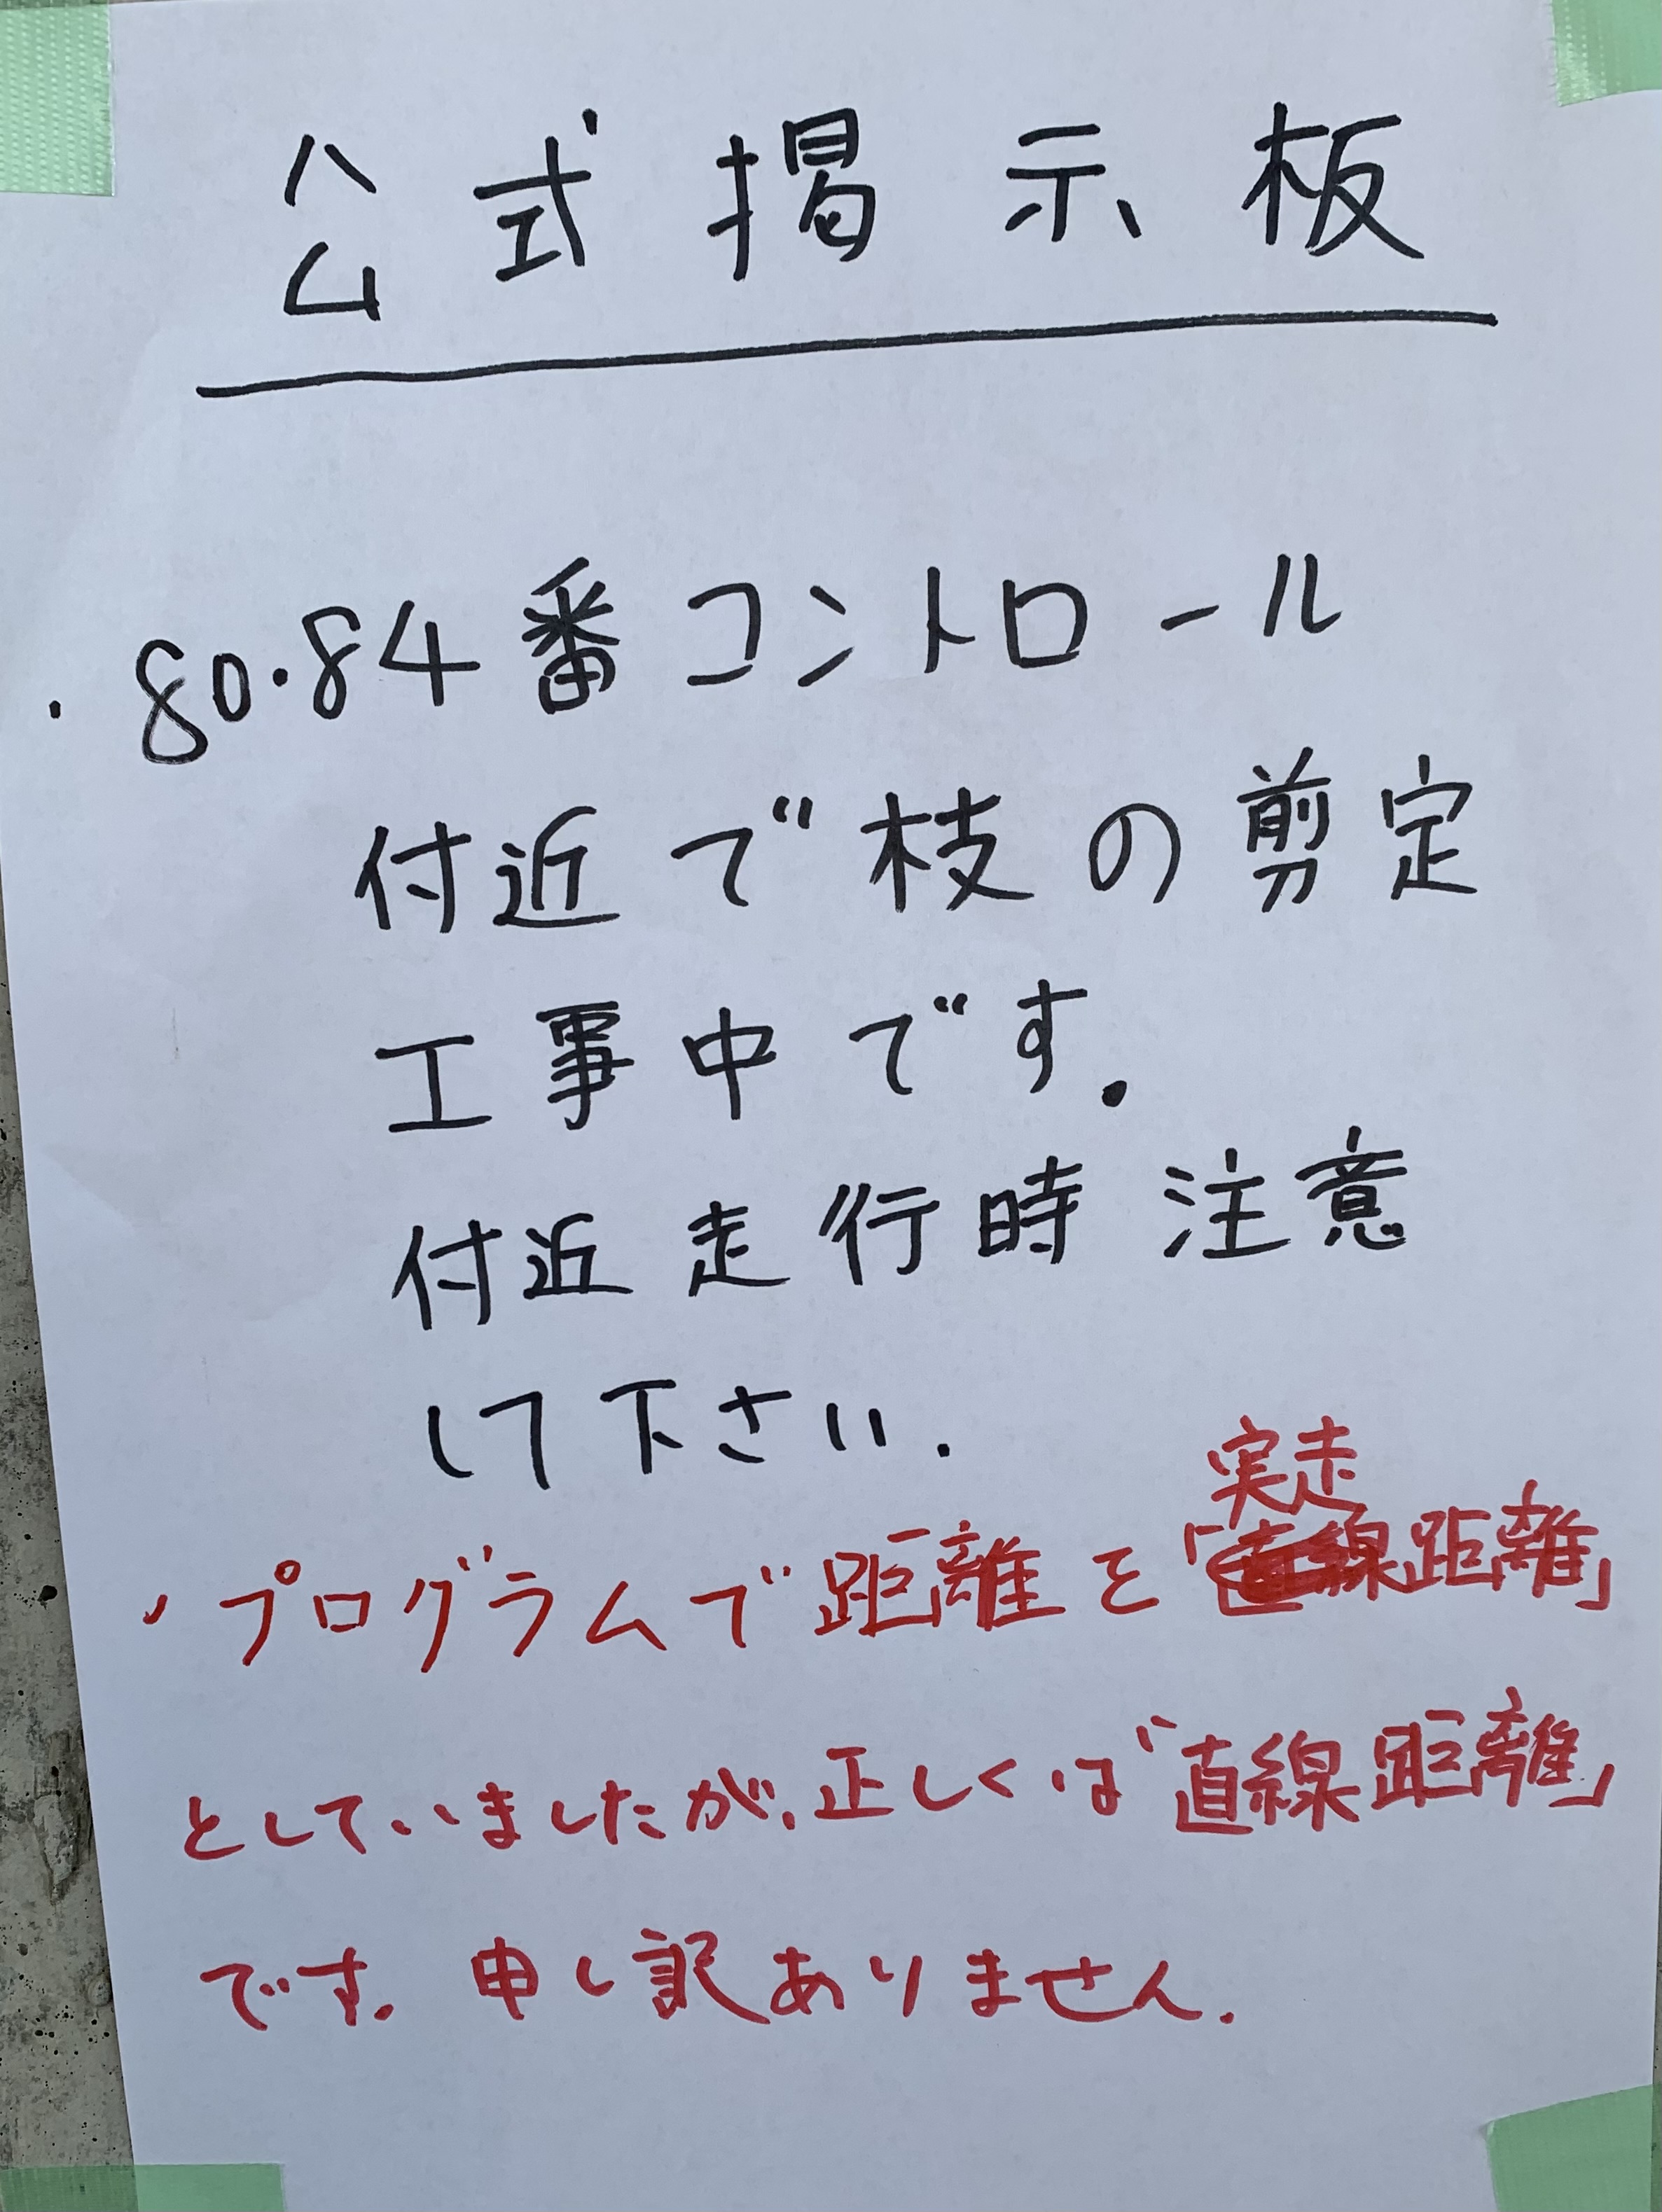 公式掲示板
・80・84番コントロール
付近で枝の剪定
工事中です.
付近走行時注意
して下さい.
実走
・プログラムで距離を「直線距離」
としていましたが、正しくは「直線距離」
です. 申し訳ありません.